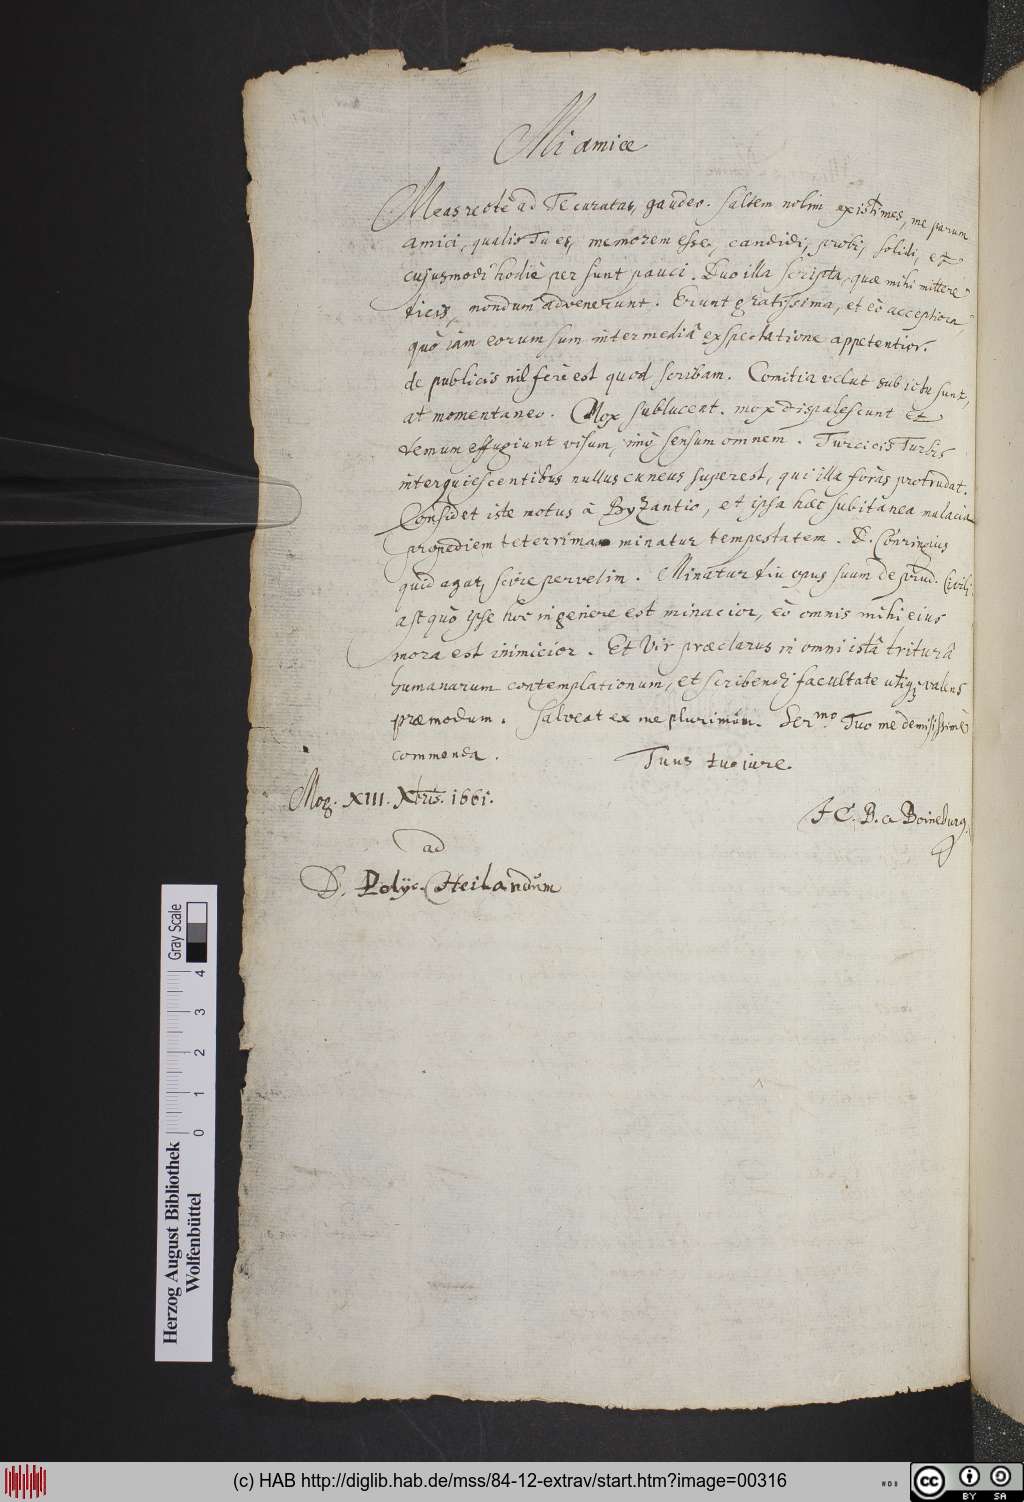 Mi amice
Meas rectè ad Te curatas, gaudeo. saltem nolim existimes, me parum
amici, qualis Tu es, memorem esse, candidi, probi, solidi, et
cujusmodi hodiè per sunt pauci. Duo illa scripta, quae mihi mittere
ticis, nondum advenerunt. Erunt gratissima, et eò acceptiora,
quò iam eorum sum intermediâ exspectatione appetentior.
de publicis nil ferè est quod scribam. Comitia velut sub ictu sunt,
at momentaneo. Mox sublucent. mox dispalescunt et
demum effugiunt visum, imò sensum omnem. Turcicis Turbis
interquiescentibus nullus cuneus superest, qui illa foràs protrudat.
Considet iste motus à Byzantio, et ipsa haec subitanea malacia
propediem teterrimam minatur tempestatem. D. Conringius
quid agat, scire pervelim. Minatur diu opus suum de prud. Civili
ast quò ipse hoc in genere est minacior, eò omnis mihi eius
mora est inimicior. Et Vir praeclarus in omni istâ triturâ
humanarum contemplationum, et scribendi facultate utiq; valens
praemodum. Salveat ex me plurimùm. Ser.mo Tuo me demississimè
commenda.
Tuus tuo iure.
Mog. XIII. Xbris. 1661.
J C. B. a Boineburg.
ad
D. Polyc. Heilandum
Gray Scale
0 1 2 3 4
Herzog August Bibliothek
Wolfenbüttel
(c) HAB http://diglib.hab.de/mss/84-12-extrav/start.htm?image=00316
WDB
cc BY SA